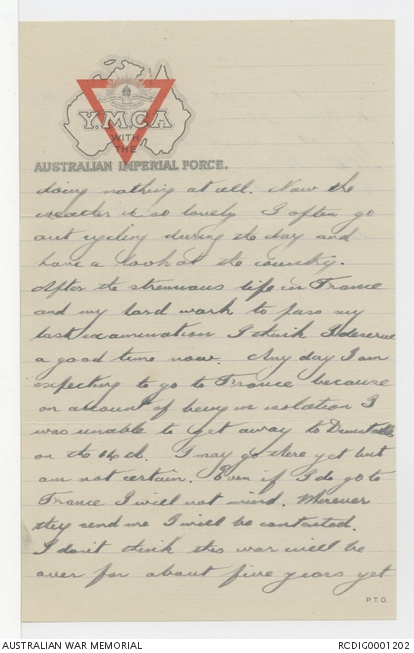 Y.M.C.A
WITH
THE
AUSTRALIAN IMPERIAL FORCE.
doing nothing at all. Now the
weather is so lovely I often go
out cycling during the day and
have a look at the country.
After the strenuous life in France
and my hard work to pass my
last examination I think I deserve
a good time now. Any day I am
expecting to go to France because
on account of being in isolation I
was unable to get away to Dunstable
on the 14th. I may go there yet but
am not certain. Even if I do go to
France I will not mind. Wherever
they send me I will be contented.
I don't think this war will be
over for about five years yet
P.T.O.
AUSTRALIAN WAR MEMORIAL
RCDIG0001202